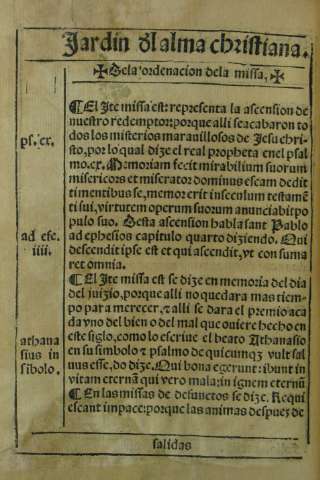 Jardin dl alma christiana.
✠Dela ordenacion dela missa,✠
¶El Jte missa est: representa la ascension de
nuestro redemptor: porque alli se acabaron to
dos los misterios marauillosos de Jesu chri-
sto, por lo qual dize el real propheta enel psal
mo.cx. Memoriam fecit mirabilium suorum
misericors et miserator dominus escam dedit
timentibus se, memor erit in seculum testamē
ti sui, virtutem operum suorum anunciabit po
pulo suo. Desta ascension habla sant Pablo
ad ephesios capitulo quarto diziendo. Qui
descendit ipse est et qui ascendit, vt consuma
ret omnia.
¶El Jte missa est se dize en memoria del dia
del juizio, porque alli no quedara mas tiem-
po para merecer, ⁊ alli se dara el premio a ca
da vno del bien o del mal que ouiere hecho en
este siglo, como lo escriue el beato Athanasio
en su simbolo ⁊ psalmo de quicumqȝ vult sal
nus esse, do dize. Qui bona egerunt: ibunt in
vitam eternā qui vero mala: in ignem eternū
¶En las missas de defunctos se dize. Requi
escant in pace: porque las animas despuez de
salidas
ps.cx.
ad efe.
iiij.
athana
sius in
sibolo.